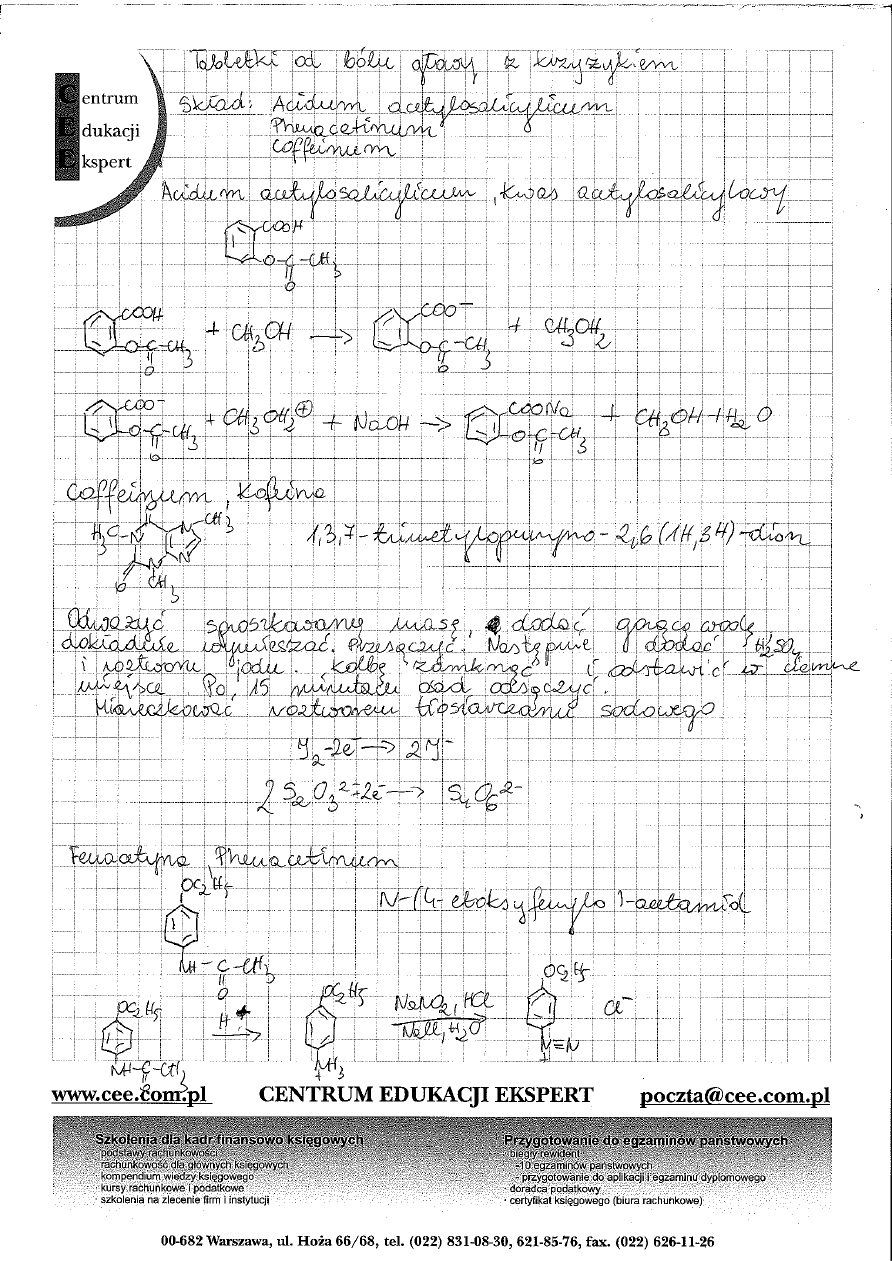 Tabletki od bólu głowy z krzyżykiem
Centrum
Edukacji
Ekspert
Skład: Acidum acetylosalicylicum
Phenacetinum
Coffeinum
Acidum acetylosalicylicum, kwas acetylosalicylowy
COOH
O-C-CH3
O
COOH + CH3OH → COO- + CH3OH2
O-C-CH3 O-C-CH3
O O
COO- + CH3OH2+ + NaOH → COONa + CH3OH + H2O
O-C-CH3 O-C-CH3
O O
Coffeinum, Kofeina
H3C-N N-CH3 1,3,7-trimetylopuryno-2,6(1H,3H)-dion
O N N
CH3
Odważyć sproszkowaną masę, dodać gorącą wodę
dokładnie wymieszać. Przesączyć. Następnie dodać H2SO4
i roztworu jodu. Kolbę zamknąć i odstawić w ciemne
miejsce. Po 15 minutach osad odsączyć.
Miareczkować roztworem tiosiarczanu sodowego
J2-2e- → 2J-
2S2O3 2- +2e- → S4O6 2-
Fenacetyna, Phenacetinum
OC2H5
N-(4-etoksyfenylo)-acetamid
NH-C-CH3
O
OC2H5 H+ → OC2H5 NaNO2, HCl OC2H5 Cl-
NaCl, H2O
NH-C-CH3 NH3 N≡N
O + +
www.cee.com.pl CENTRUM EDUKACJI EKSPERT poczta@cee.com.pl
Szkolenia dla kadr finansowo księgowych
podstawy rachunkowości
rachunkowość dla głównych księgowych
kompendium wiedzy księgowego
kursy rachunkowe i podatkowe
szkolenia na zlecenie firm i instytucji
Przygotowanie do egzaminów państwowych
biegły rewident
-10 egzaminów państwowych
- przygotowanie do aplikacji i egzaminu dyplomowego
doradca podatkowy
- certyfikat księgowego (biura rachunkowe)
00-682 Warszawa, ul. Hoża 66/68, tel. (022) 831-08-30, 621-85-76, fax. (022) 626-11-26